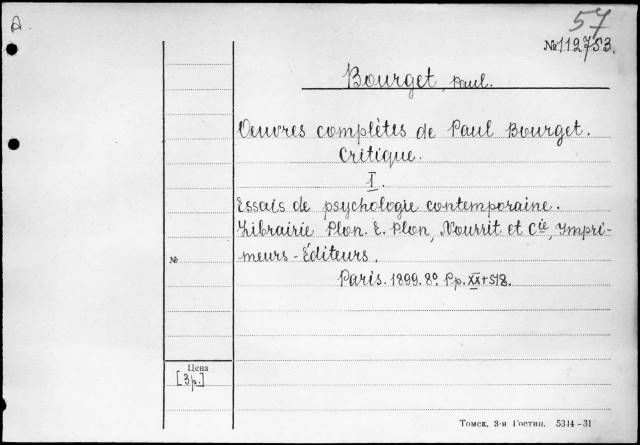 A.
57
№112753.
Bourget, Paul.
Oeuvres complètes de Paul Bourget.
Critique.
I.
Essais de psychologie contemporaine.
Librairie Plon. E. Plon, Nourrit et Cie, Impri-
meurs-Éditeurs.
№
Paris. 1899. 8º. Pp. XX+518.
Цена
[3р.]
Томск, 3-я Гостип. 5314-31